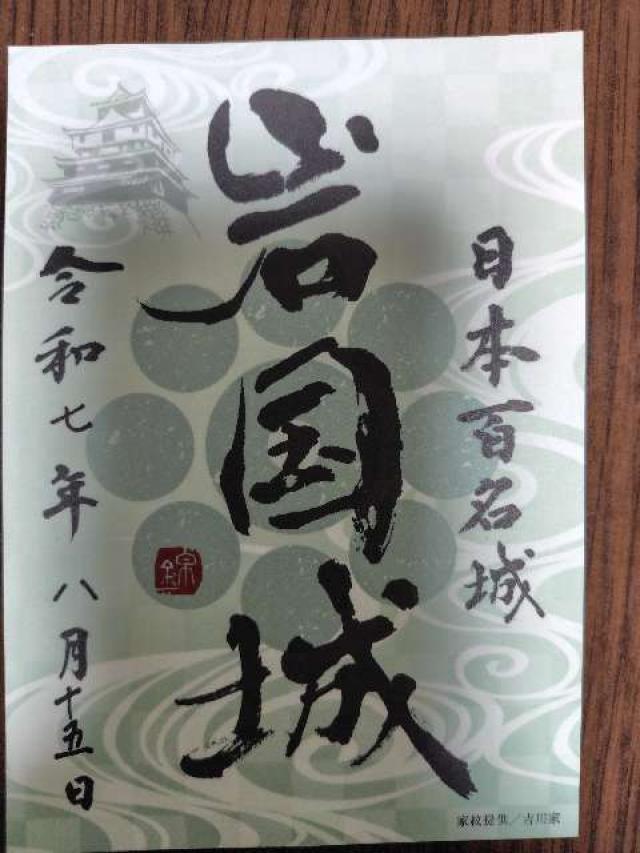 日本百名城
岩国城
令和七年八月十五日
錦
家紋提供／吉川家